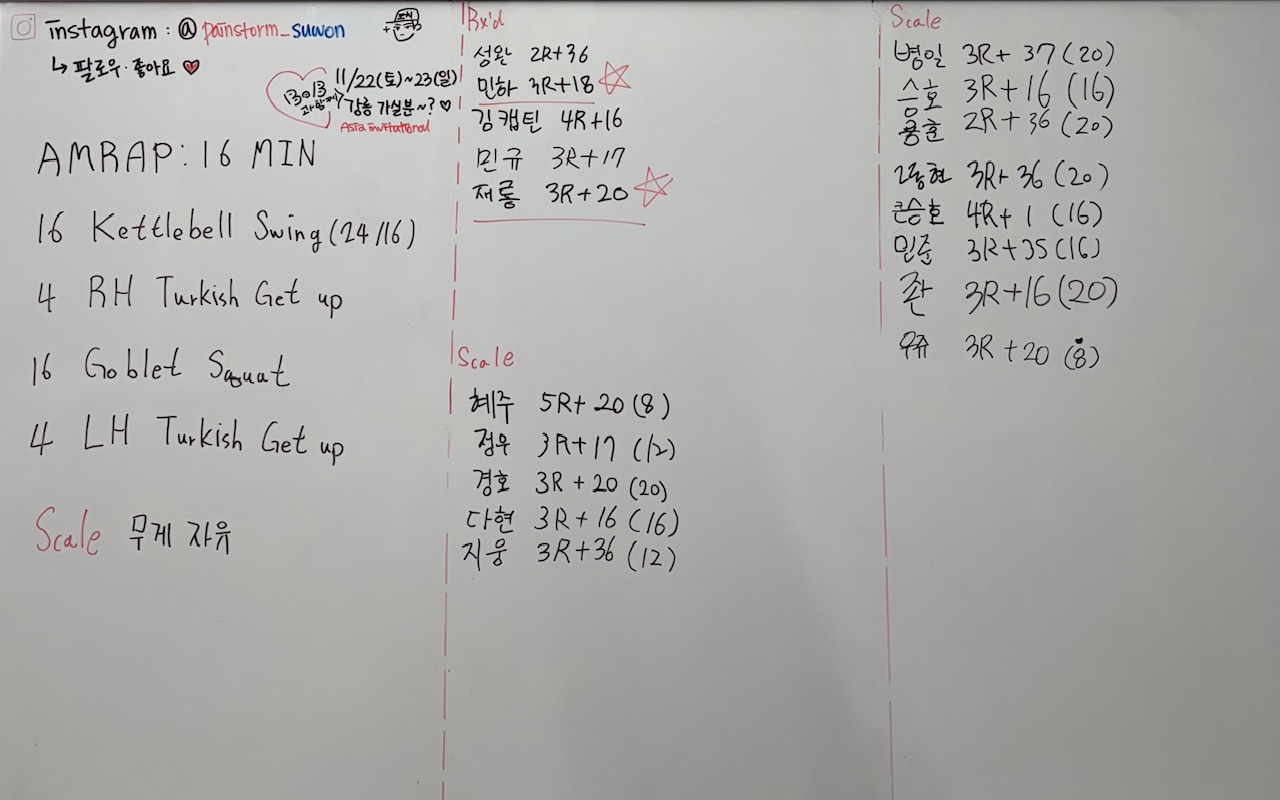 instagram : @ painstorm_suwon
↳ 팔로우·좋아요 ♥
11/22(토)~23(일)
강릉 가실분~? ♡
Asia invitational
AMRAP: 16 MIN
16 Kettlebell Swing (24/16)
4 RH Turkish Get up
16 Goblet Squat
4 LH Turkish Get up
Scale 무게 자유
Rx'd
성완 2R+36
민하 3R+18 ☆
김캡틴 4R+16
민규 3R+17
재롱 3R+20 ☆
Scale
혜주 5R+20 (8)
정우 3R+17 (12)
경호 3R+20 (20)
다현 3R+16 (16)
지웅 3R+36 (12)
Scale
병일 3R+37 (20)
승호 3R+16 (16)
용훈 2R+36 (20)
3R+36 (20)
큰승호 4R+1 (16)
민준 3R+35 (16)
좐 3R+16 (20)
우쥬 3R+20 (8)